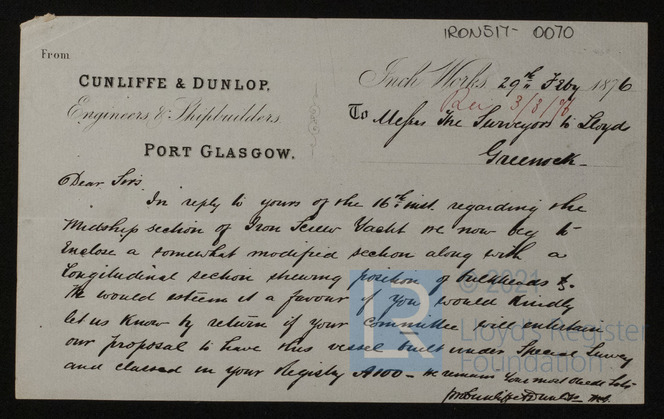 IRON517- 0070
From
CUNLIFFE & DUNLOP,
Engineers & Shipbuilders
PORT GLASGOW.
Inch Works 29th Feby 1876
Rec 3/3/76
To Messrs The Surveyors to Lloyds
Greenock
Dear Sirs
In reply to yours of the 16th inst. regarding the
Midship section of Iron Screw Yacht we now beg to
Enclose a somewhat modified section along with a
Longitudinal section shewing position of bulkheads &c.
We would esteem it a favour if you would kindly
let us know by return if your committee will entertain
our proposal to have this vessel built under Special Survey
and classed in your Registry A100 - We remain Your most Obedt Svts
Cunliffe & Dunlop
© 2021
Lloyd's Register
Foundation
LR